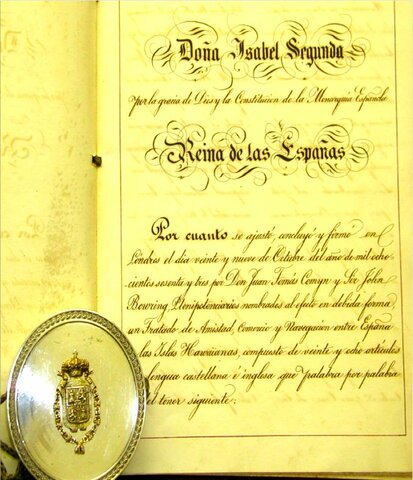 Doña Isabel Segunda
por la gracia de Dios y la Constitucion de la Monarquía Española
Reina de las Españas
Por cuanto se ajustó, concluyó y firmó en
Lóndres el dia veinte y nueve de Octubre del año de mil ocho-
cientos sesenta y tres por Don Juan Tomás Comyn y Sir John
Bowring Plenipotenciarios nombrados al efecto en debida forma
un Tratado de Amistad, Comercio y Navegacion entre España
las Islas Hawaiianas, compuesto de veinte y ocho artículos
lengua castellana é inglesa que palabra por palabra
del tenor siguiente: